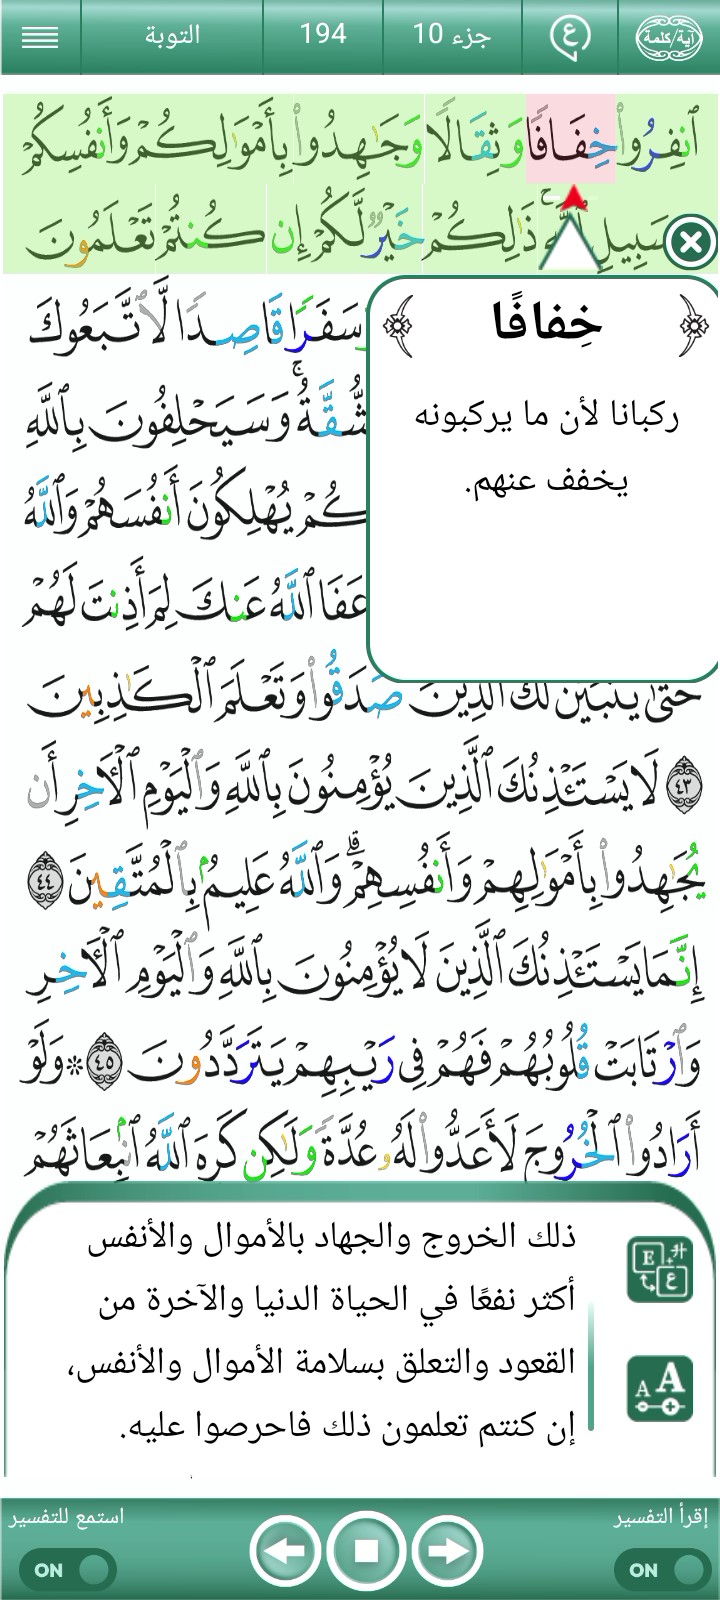 آية/كلمة
ع
جزء 10
194
التوبة
ٱنفِرُوا۟ خِفَافًا وَثِقَالًا وَجَـٰهِدُوا۟ بِأَمْوَٰلِكُمْ وَأَنفُسِكُمْ
سَبِيلِ ٱللَّهِ ۚ ذَٰلِكُمْ خَيْرٌ لَّكُمْ إِن كُنتُمْ تَعْلَمُونَ
خِفافًا
ركبانا لأن ما يركبونه
يخفف عنهم.
وَسَفَرًا قَاصِدًا لَّٱتَّبَعُوكَ
ٱلشُّقَّةُ ۚ وَسَيَحْلِفُونَ بِٱللَّهِ
يُهْلِكُونَ أَنفُسَهُمْ وَٱللَّهُ
عَفَا ٱللَّهُ عَنكَ لِمَ أَذِنتَ لَهُمْ
حَتَّىٰ يَتَبَيَّنَ لَكَ ٱلَّذِينَ صَدَقُوا۟ وَتَعْلَمَ ٱلْكَـٰذِبِينَ
٤٣ لَا يَسْتَـْٔذِنُكَ ٱلَّذِينَ يُؤْمِنُونَ بِٱللَّهِ وَٱلْيَوْمِ ٱلْـَٔاخِرِ أَن
يُجَـٰهِدُوا۟ بِأَمْوَٰلِهِمْ وَأَنفُسِهِمْ ۗ وَٱللَّهُ عَلِيمٌۢ بِٱلْمُتَّقِينَ ٤٤
إِنَّمَا يَسْتَـْٔذِنُكَ ٱلَّذِينَ لَا يُؤْمِنُونَ بِٱللَّهِ وَٱلْيَوْمِ ٱلْـَٔاخِرِ
وَٱرْتَابَتْ قُلُوبُهُمْ فَهُمْ فِى رَيْبِهِمْ يَتَرَدَّدُونَ ٤٥ ۞ وَلَوْ
أَرَادُوا۟ ٱلْخُرُوجَ لَأَعَدُّوا۟ لَهُۥ عُدَّةً وَلَـٰكِن كَرِهَ ٱللَّهُ ٱنۢبِعَاثَهُمْ
ذلك الخروج والجهاد بالأموال والأنفس
أكثر نفعًا في الحياة الدنيا والآخرة من
القعود والتعلق بسلامة الأموال والأنفس،
إن كنتم تعلمون ذلك فاحرصوا عليه.
E
ع
A A
إقرأ التفسير
استمع للتفسير
ON
ON